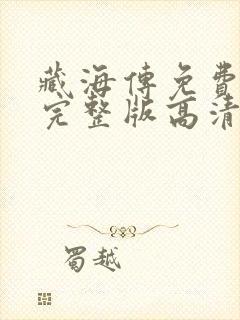 藏海傳免費
完整版高清
蜀越